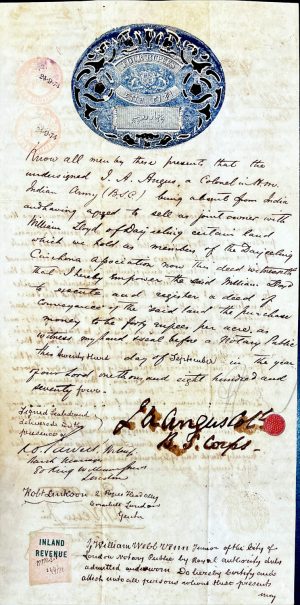 FOUR RUPEES
24-9-74
24-9-74
Know all men by these presents that the
undersigned J. A. Angus, a Colonel in H.M.
Indian Army (B.S.C) being absent from India
and having agreed to sell as joint owner with
William Lloyd of Darjeeling certain land
which we hold as members of the Darjeeling
Cinchona Association now this deed witnesseth
that I hereby empower the said William Lloyd
to execute and register a deed of
conveyance of the said land the purchase
money to be forty rupees per acre, as
witness my hand & seal before a Notary Public
this twenty third day of September in the year
of our Lord one thousand eight hundred and
seventy four.
Signed Sealed and
delivered in the
presence of
J A Angus Col
B. S. Corps.
80 King William Street
London
2 Popes Head Alley
Cornhill London
Gent
INLAND
REVENUE
I, William Webb Venn Junior of the City of
London Notary Public by Royal Authority duly
admitted and sworn Do hereby certify and
attest unto all persons whom these presents
may